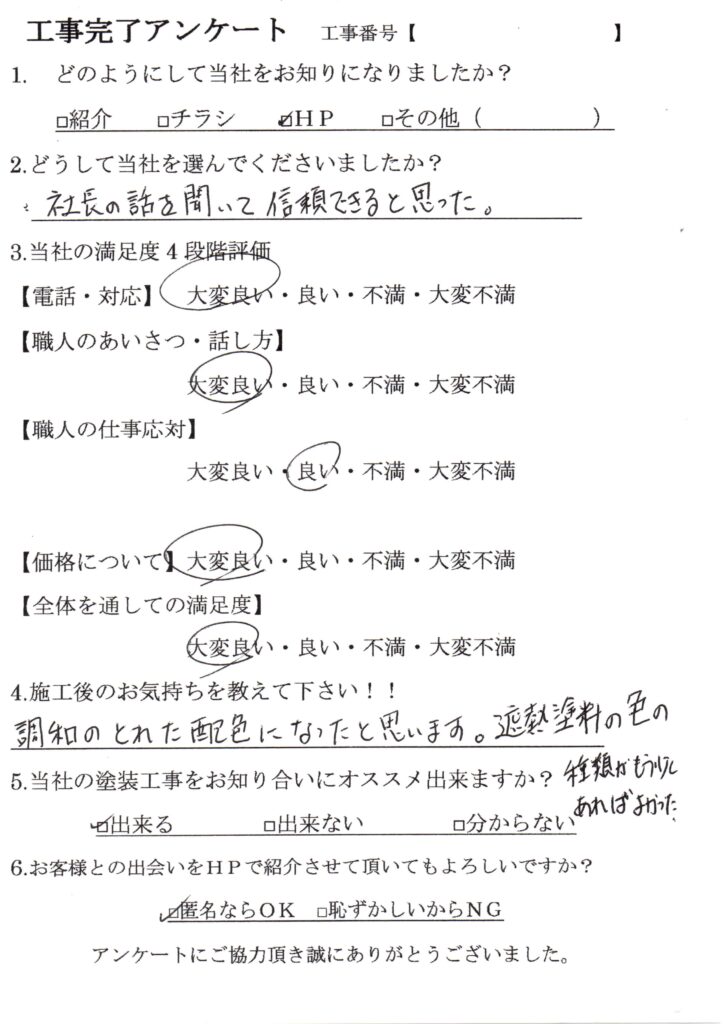 工事完了アンケート 工事番号【 】
1. どのようにして当社をお知りになりましたか？
□紹介 □チラシ ☑ＨＰ □その他（ ）
2.どうして当社を選んでくださいましたか？
社長の話を聞いて信頼できると思った。
3.当社の満足度４段階評価
【電話・対応】 大変良い・良い・不満・大変不満
【職人のあいさつ・話し方】
大変良い・良い・不満・大変不満
【職人の仕事応対】
大変良い・良い・不満・大変不満
【価格について】大変良い・良い・不満・大変不満
【全体を通しての満足度】
大変良い・良い・不満・大変不満
4.施工後のお気持ちを教えて下さい！！
調和のとれた配色になったと思います。遮熱塗料の色の
種類がもう少し
あればよかった。
5.当社の塗装工事をお知り合いにオススメ出来ますか？
☑出来る □出来ない □分からない
6.お客様との出会いをＨＰで紹介させて頂いてもよろしいですか？
☑匿名ならＯＫ □恥ずかしいからＮＧ
アンケートにご協力頂き誠にありがとうございました。